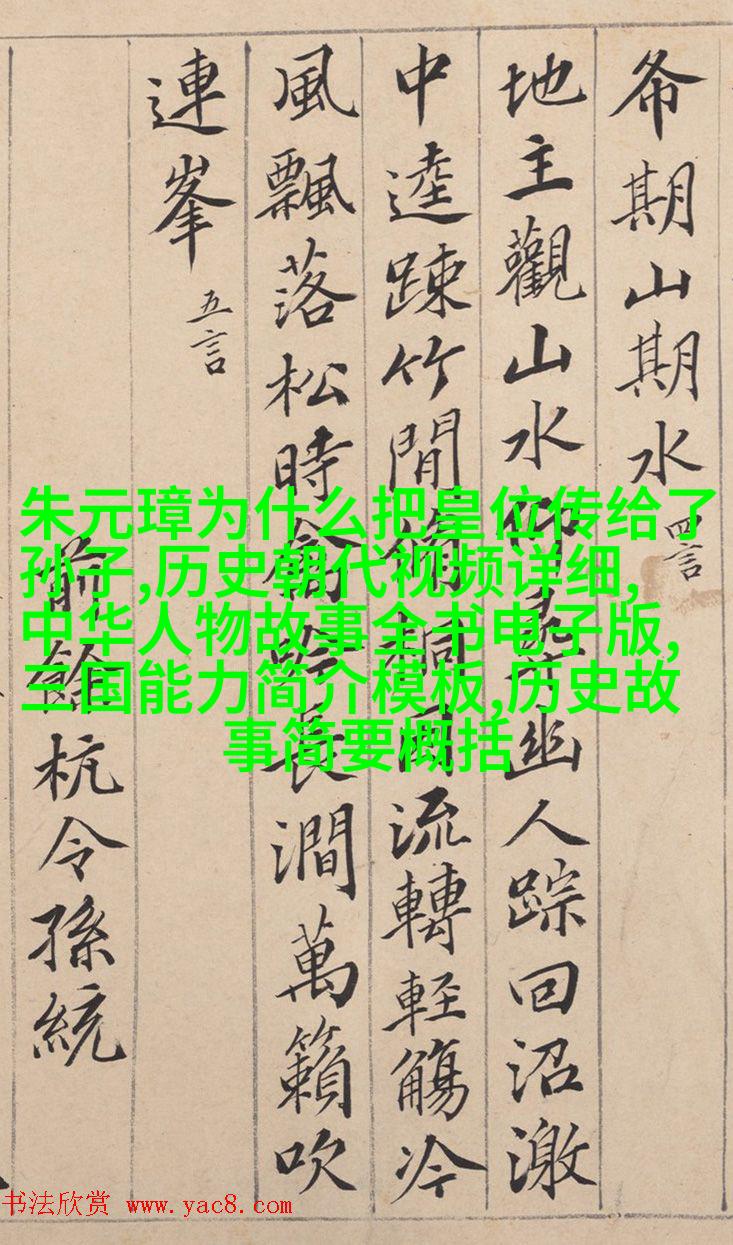 希期山期水 四言
地主觀山水仰尋幽人踪回沼激
中逵踈竹間脩桐因流轉輕觴冷
風飄落松時禽吟長澗萬籟吹
連峯 五言
前餘杭令孫統
朱元璋为什么把皇位传给了
孙子,历史朝代视频详细,
中华人物故事全书电子版,
三国能力简介模板,历史故
事简要概括
书法欣赏 www.yac8.com